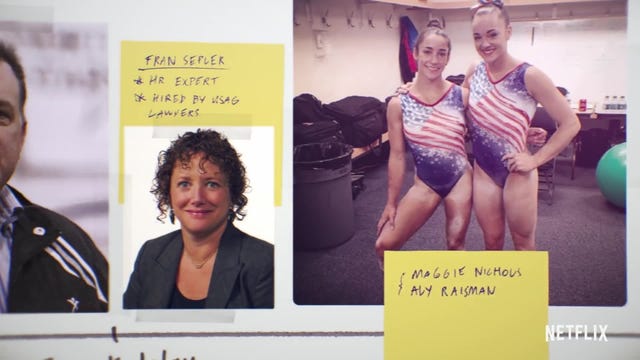 FRAN SEPLER
* HR EXPERT
* HIRED BY USAG
LAWYERS
MAGGIE NICHOLS
ALY RAISMAN
NETFLIX